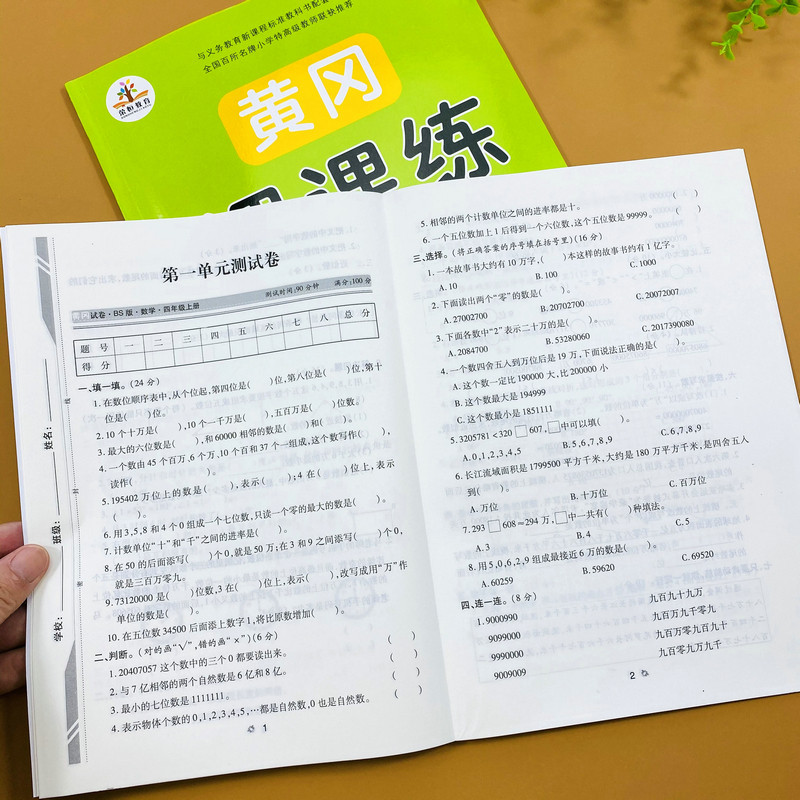 与义务教育新课程标准教科书配套
全国百所名牌小学特高级教师联袂推荐
荣恒教育
黄冈
课练
第一单元测试卷
黄冈试卷·BS版·数学·四年级上册 测试时间:90分钟 满分:100分
题号 一 二 三 四 五 六 七 八 总分
得分
学校: 班级: 姓名:
一、填一填。(24分)
1.在数位顺序表中,从个位起,第四位是( )位,第八位是( )位,第十
位是( )位。
2.10个十万是( ),10个一千万是( ),五百万是( )位数。
3.最大的六位数是( ),和60000相邻的数是( )和( )。
4.一个数由45个百万,6个万,10个百和37个一组成,这个数写作( ),
读作( )。
5.195402万位上的数是( ),表示( );4在( )位上,表示
( )。
6.用3,5,8和4个0组成一个七位数,只读一个零的最大的数是( )。
7.计数单位“十”和“千”之间的进率是( )。
8.在50的后面添写( )个0,就是50万;在3和9之间添写( )个0,
就是三百万零九。
9.73120000是( )位数,3在( )位上,表示( ),改写成用“万”作
单位的数是( )。
10.在五位数34500后面添上数字1,将比原数增加( )。
二、判断。(对的画“√”,错的画“×”)(6分)
1.20407057这个数中的三个0都要读出来。 ( )
2.与7亿相邻的两个自然数是6亿和8亿。 ( )
3.最小的七位数是1111111。 ( )
4.表示物体个数的0,1,2,3,4,5,…都是自然数,0也是自然数。 ( )
1
5.相邻的两个计数单位之间的进率都是十。 ( )
6.一个五位数加上1后得到一个六位数,这个五位数是99999。 ( )
三、选择。(将正确答案的序号填在括号里)(16分)
1.一本故事书大约有10万字,( )本这样的故事书约有1亿字。
A.10 B.100 C.1000
2.下面读出两个“零”的数是( )。
A.27002700 B.20702700 C.20072007
3.下面各数中“2”表示二十万的是( )。
A.2084700 B.53280060 C.2017390080
4.一个数四舍五入到万位后是19万,下面说法正确的是( )。
A.这个数一定比190000大,比200000小
B.这个数最大是194999
C.这个数最小是1851111
5.3205781<320□607,□中可以填( )。
A.0,1,2,3,4,5 B.5,6,7,8,9 C.6,7,8,9
6.长江流域面积是1799500平方千米,大约是180万平方千米,是四舍五入
到( )。
A.万位 B.十万位 C.百万位
7.293□608≈294万,□中一共有( )种填法。
A.3 B.4 C.5
8.用5,0,6,2,9组成最接近6万的数是( )。
A.60259 B.59620 C.69520
四、连一连。(8分)
1.9000990 九百九十九万
9099000 九百万九千零九
9990000 九百万零九百九十
9009009 九百零九万九千
2